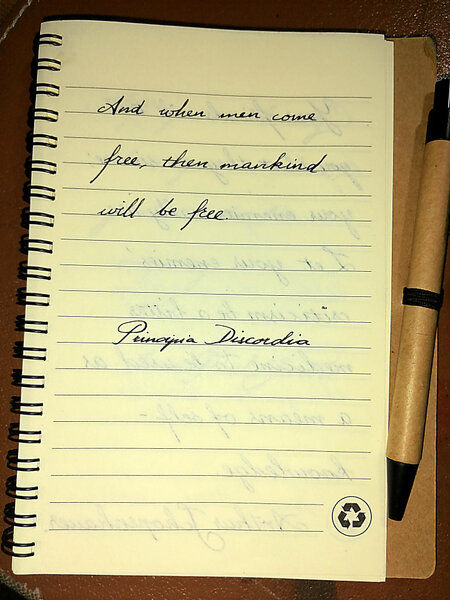 And when men come
free, then mankind
will be free.
Principia Discordia